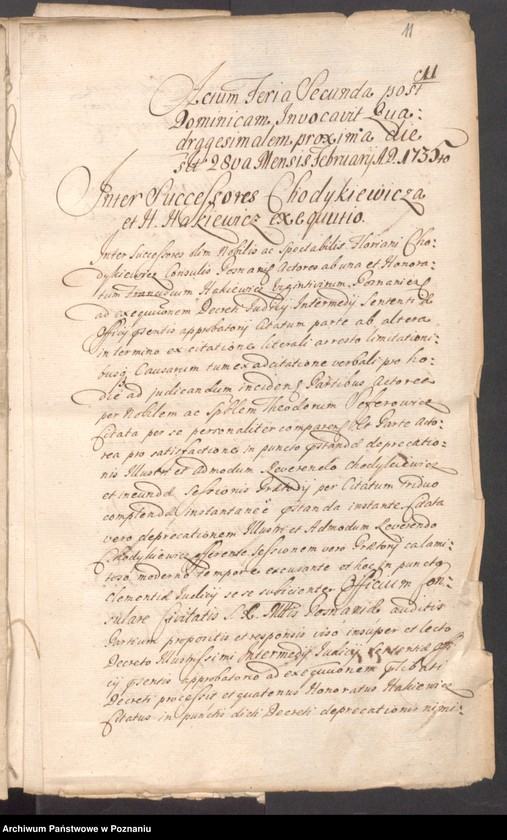 11
11
Actum Feria Secunda post
Dominicam Invocavit Qua:
dragesimalem proxima die
scil: 28va Mensis Februarij A.D. 1735to
Inter Successores Chodykiewicza
et H. Hakiewicz exequutio.
Inter Successores olim Nobilis ac Spectabilis Floriani Cho:
dykiewicz Consulis Posnans Actores ab una et Honora:
tum Franciscum Hakiewicz Vigintivirum Posnanien
ad exequutionem Decreti Judicij Intermedij Sententi
Officij approbatorij Citatum parte ab altera
in termino ex citatione literali arresto limitationi:
busq Causarum tum ex adcitatione verbali pro ho:
die ad judicandum inciden Partibus Actorea
per Nobilem ac Spblem Theodorum
Citata per se personaliter comparen Parte Acto:
rea pro satisfactione in puncto deprecatio:
nis Illustri et admodum Reverendo Chodykiewicz
et ineunda Sessionis Prætorij per Citatum Triduo
complenda instantane instante Citata
vero deprecationem Illustri et Admodum Reverendo
Chodykiewicz offerente Sessionem vero Prætorij calami:
toso moderno tempore excusante et hoc in puncto
Clementiæ Judicij se se subiciente Officium Con:
sulare Civitatis S. R. Mttis Posnaniæ auditis
Partium propositis et responsis viso insuper et lecto
Decreto Illustrissimi Intermedij Judicij Sententiæ Offi
cij approbatorio ad exequutionem
Decreti processit et quatenus Honoratus Hakiewicz
Citatus in puncti dicti Decreti deprecationis nimi:
Archiwum Państwowe w Poznaniu
Archiwum Państwowe w Poznaniu